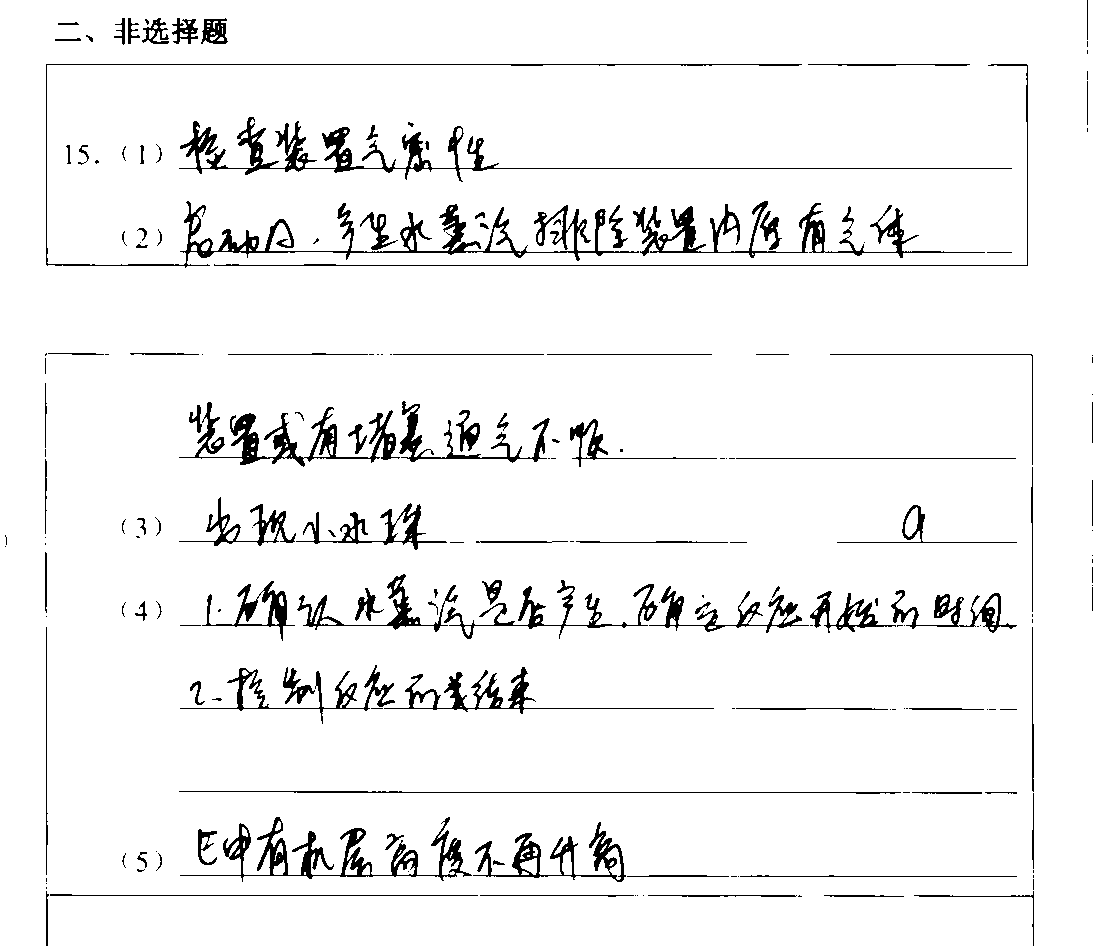 二、非选择题
15.（1）检查装置气密性
（2）启动A，产生水蒸汽排除装置内原有气体
装置或有堵塞通气不顺.
（3）出现小水珠 a
（4）1.确认水蒸汽是否产生，确定反应开始的时间、
2.控制反应的结束
（5）E中有机层高度不再升高